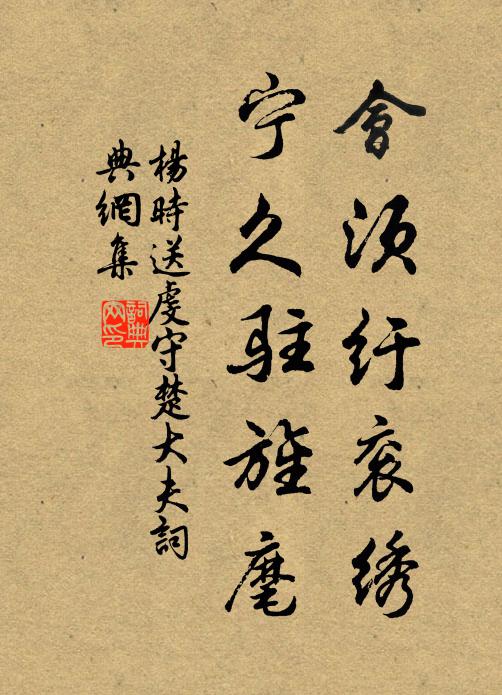 會須紆衮绣
宁久駐旌麾
楊時送虔守楚大夫詞
典網集
詞典網印